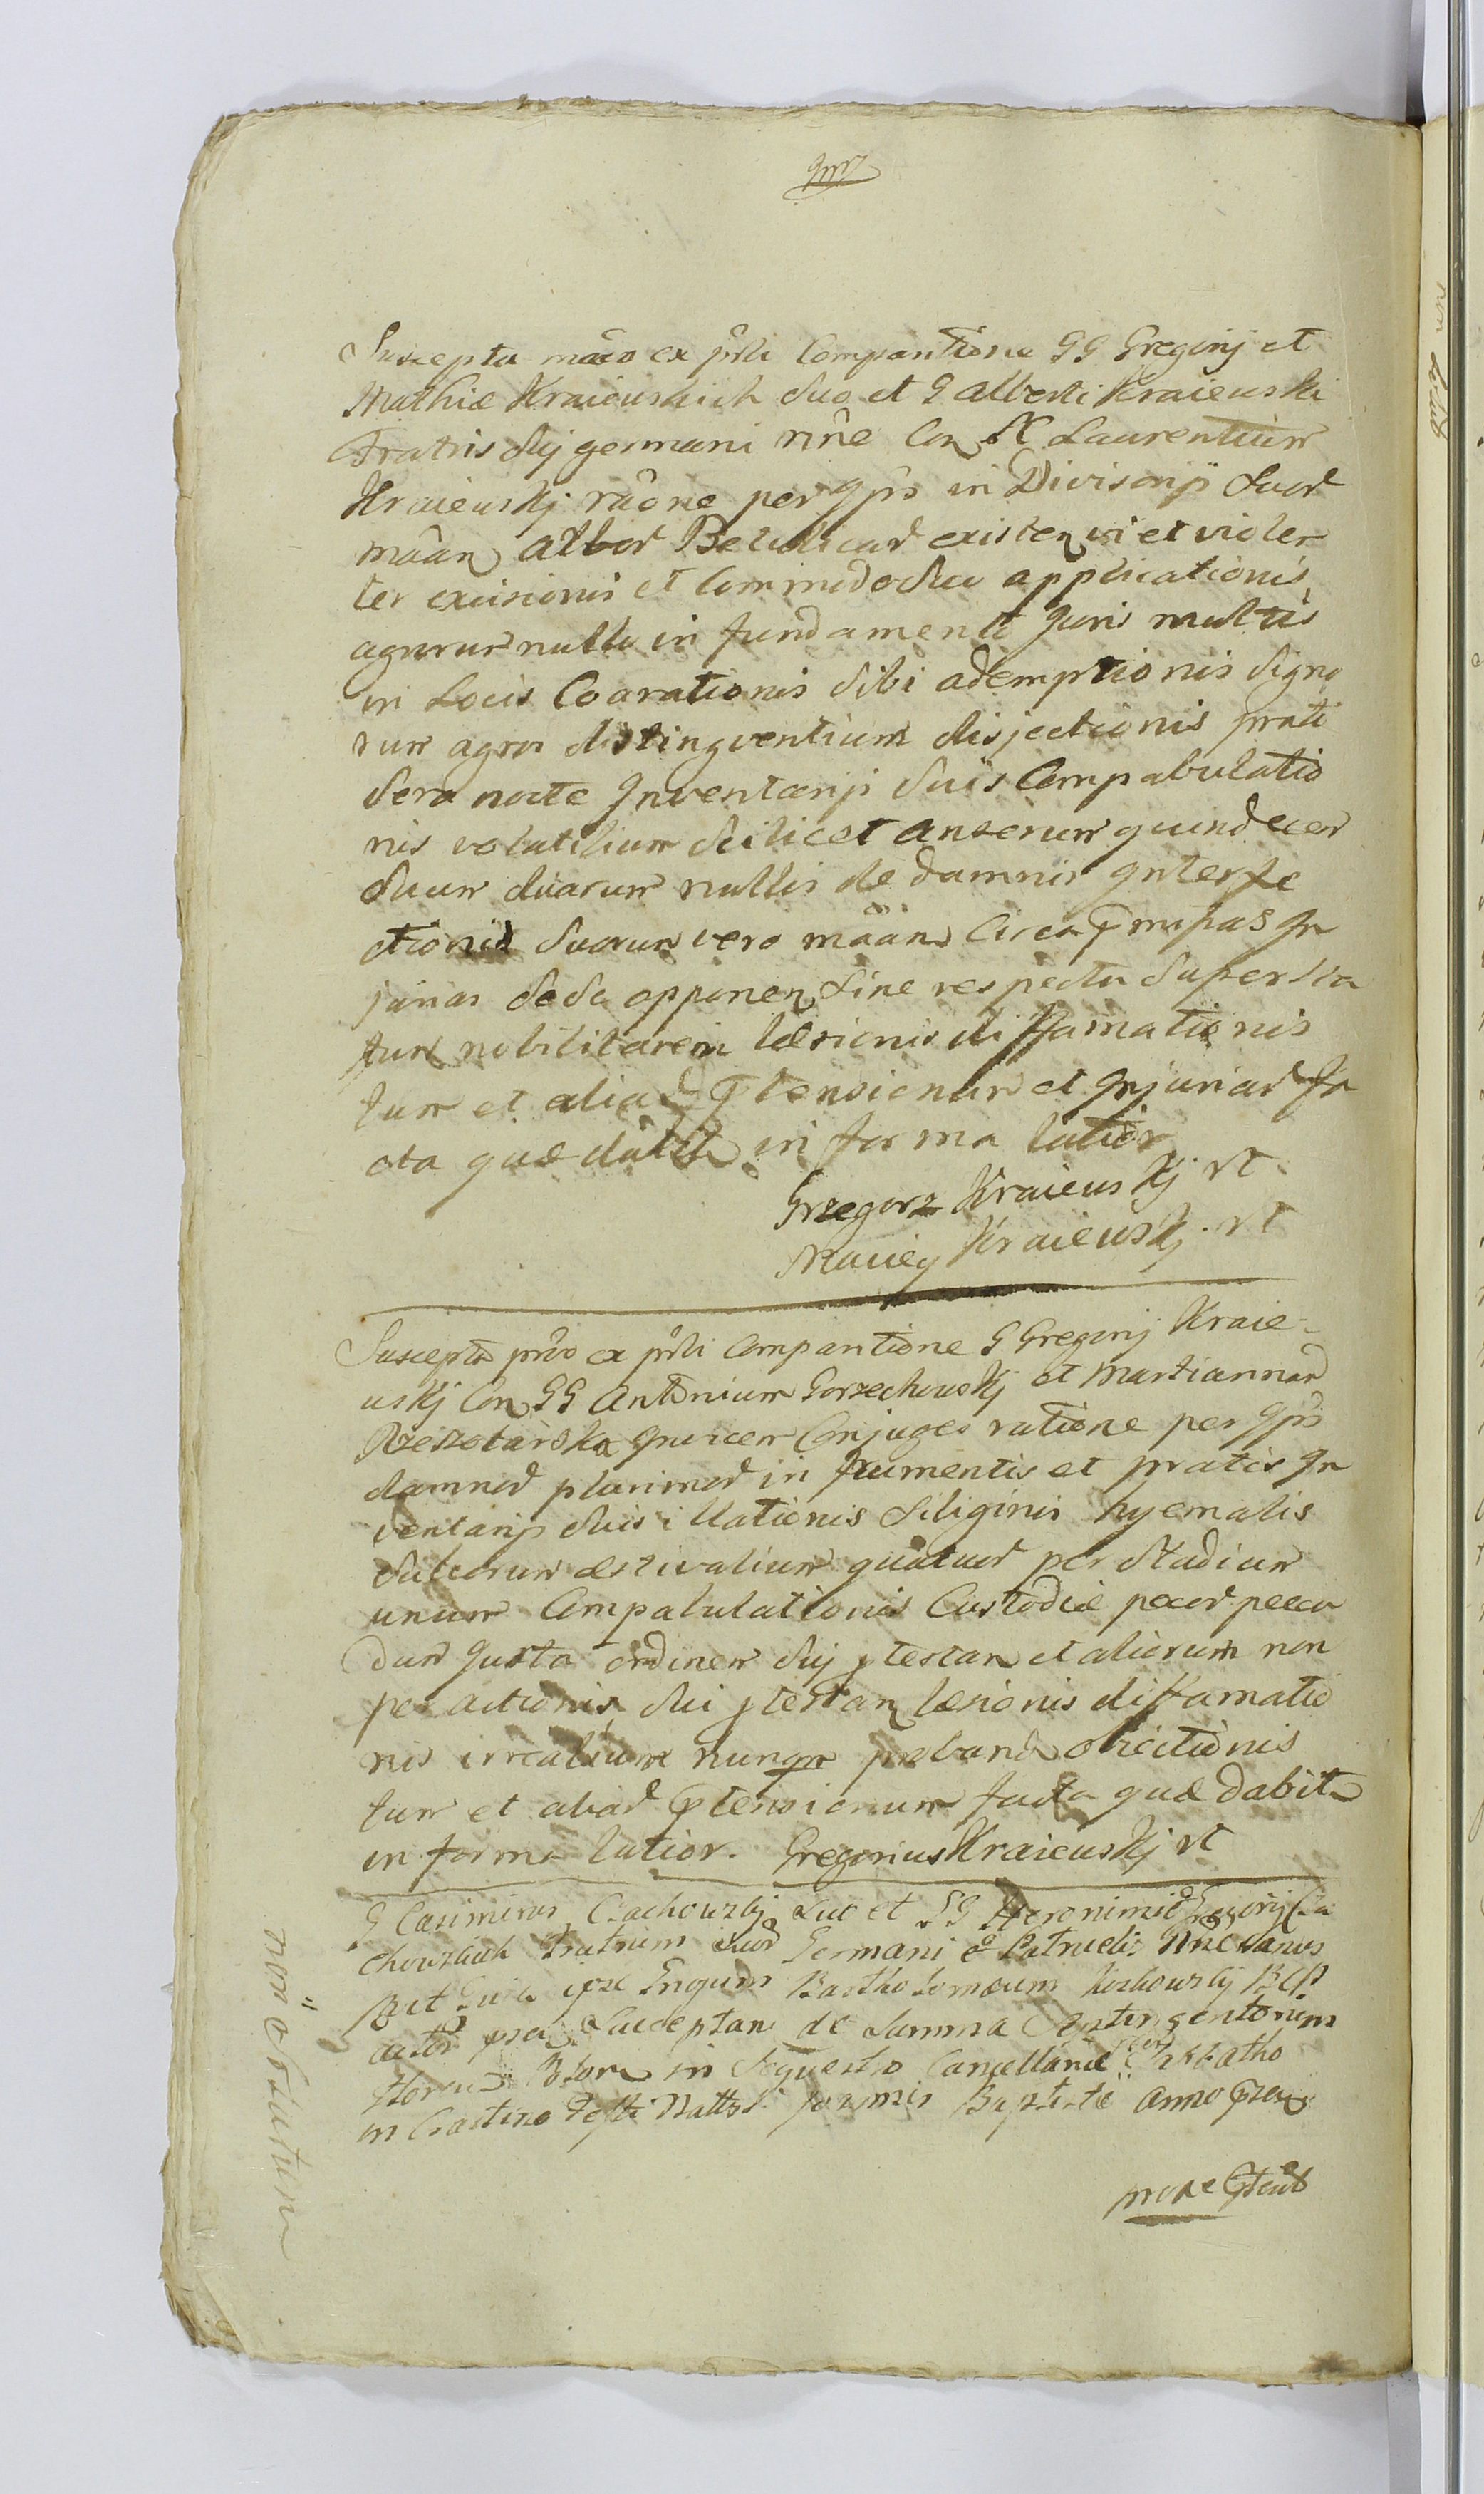 Suscepta mâo ex prli Comparitione GG Gregorij et
Mathiæ Kraiewskich suo et G Alberti Kraiewski
Fratris sui germani nne Con N Laurentium
Kraiewskj râone per Ipis in Divisorijs suor
mâan albor Betulicar existen et violen
ter excisionis et Commodo suo applicationis
agrorum nullo in fundamento Juris multis
in Locis Coarationis sibi ademptionis signo
rum agros distingventium disjectionis prati
sera nocte Inventarij suis Compabulatio
nis volatilium scilicet anserum quindecem
suum duarum nullis de damnis Interfe
ctionis suarum vero mâan Circa
jurias sese opponen sine respectu super sta
tum nobilitarem læsionis diffamationis
tum et aliar ptensionum et Injuriar fa
cta quæ dabit in forma latior
Grzegorz Kraiewskj rt
Maciey Kraiewskj rt
Suscepta pnô ex prli Comparitione G Gregorij Kraie-
wskj Con GG Antonium Gorzechowskj et Mariannam
Rzeszotarska Invicem Conjuges ratione per Ipis
damnor plurimor in frumentis et pratis In
ventarijs suis illationis siliginis hyemalis
sulcorum æstivalium quatuor per Stadium
unum Compabulationis Custodiæ pecor pecu
dum Juxta ordinem sui ptestan et aliorum non
peractionis sui ptestan læsionis diffamatio
nis irrealium nunqm proband obiectionis
tum et aliar ptensionum facta quæ dabit
in forma latior. Gregorius Kraiewskj rt
G Casimirus Czachowskj suo et GG Hieronimi Gregorij Cza
chowskich Fratrum suor Germani et Patruelis nne
Bartholomæum
de Summa
Floren Polon in Sequestro Cancellariæ Sabbatho
in Crastino Festi Joannis Baptistæ Anno
more
non obstatum